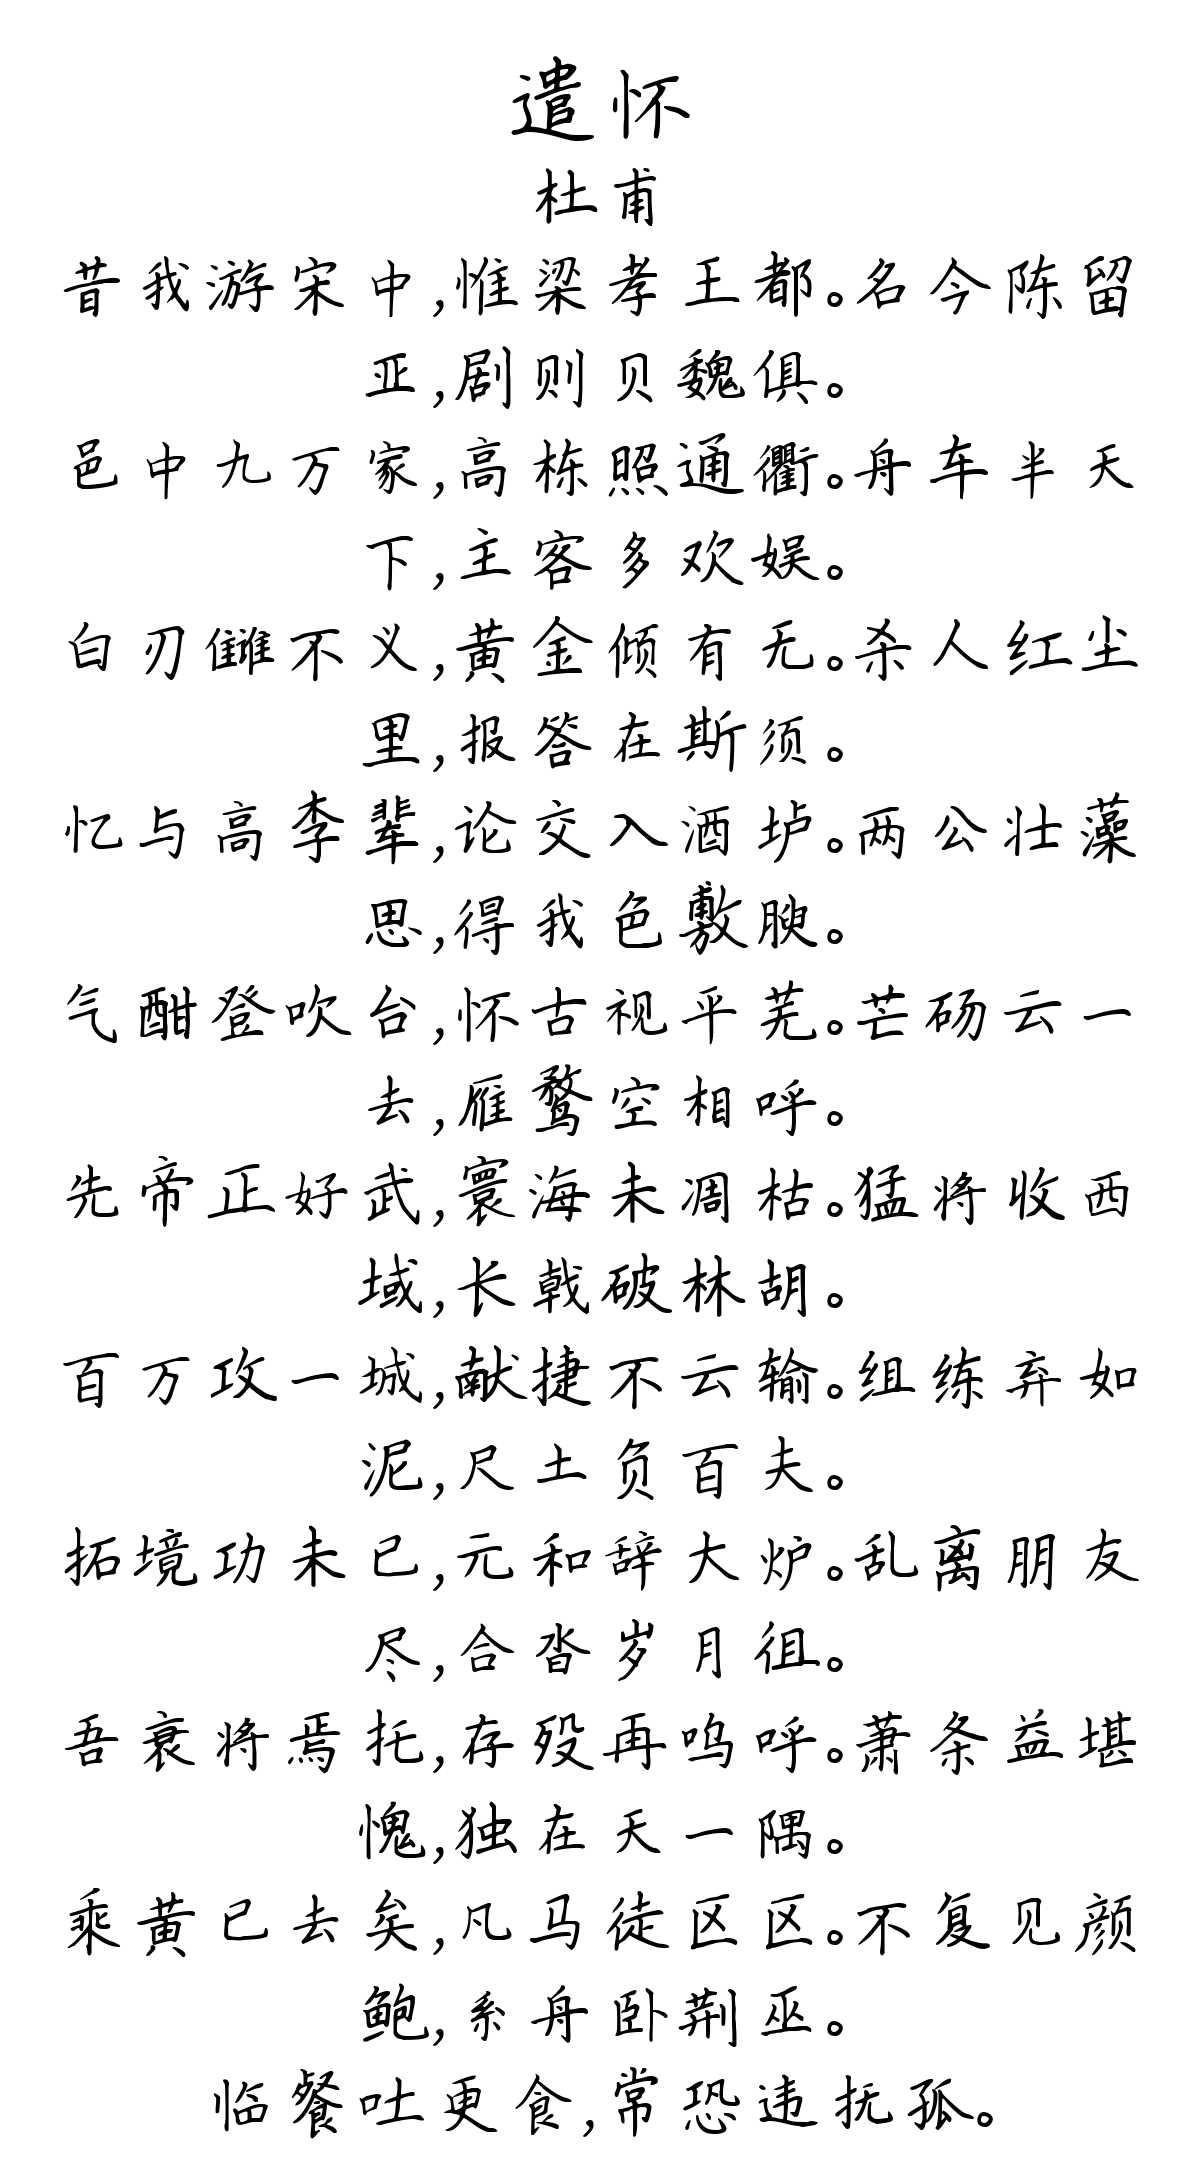 遣怀
杜甫
昔我游宋中,惟梁孝王都。名今陈留
亚,剧则贝魏俱。
邑中九万家,高栋照通衢。舟车半天
下,主客多欢娱。
白刃雠不义,黄金倾有无。杀人红尘
里,报答在斯须。
忆与高李辈,论交入酒垆。两公壮藻
思,得我色敷腴。
气酣登吹台,怀古视平芜。芒砀云一
去,雁鹜空相呼。
先帝正好武,寰海未凋枯。猛将收西
域,长戟破林胡。
百万攻一城,献捷不云输。组练弃如
泥,尺土负百夫。
拓境功未已,元和辞大炉。乱离朋友
尽,合沓岁月徂。
吾衰将焉托,存殁再呜呼。萧条益堪
愧,独在天一隅。
乘黄已去矣,凡马徒区区。不复见颜
鲍,系舟卧荆巫。
临餐吐更食,常恐违抚孤。